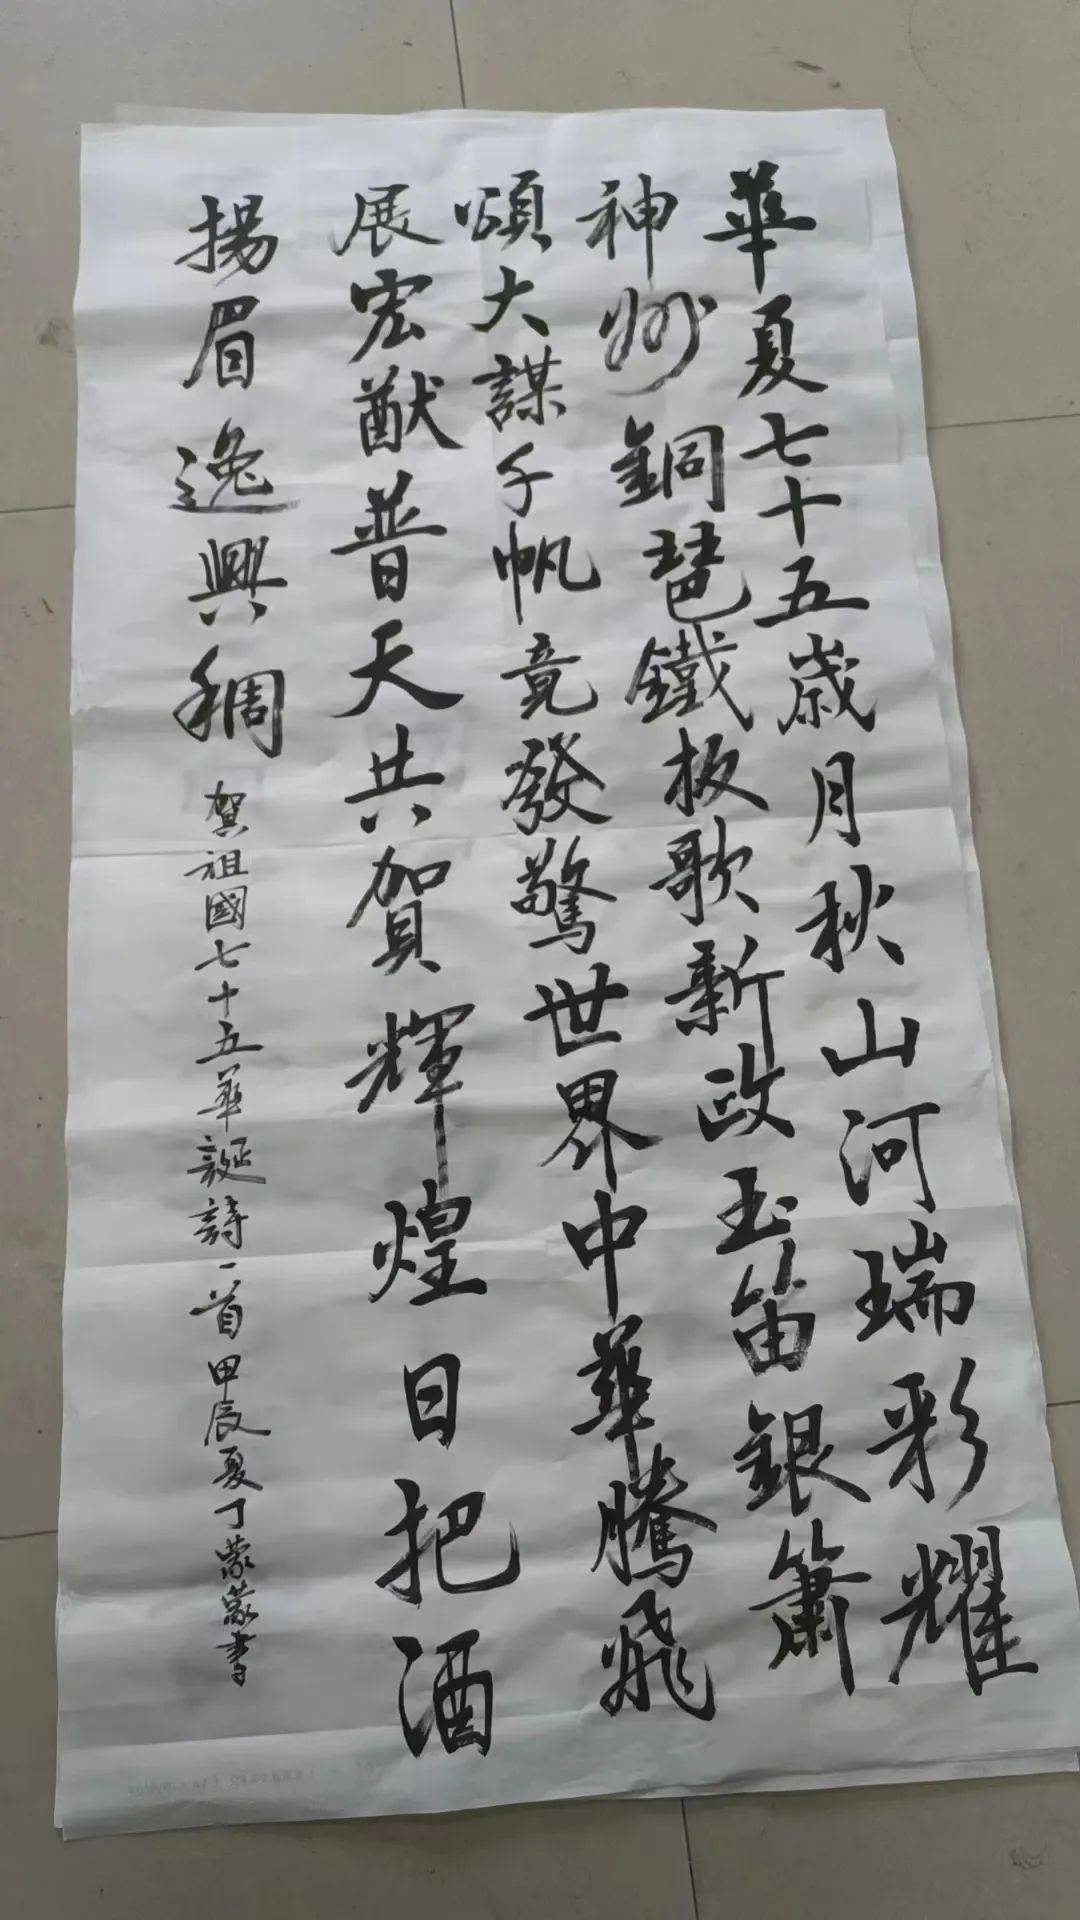 華夏七十五歲月秋山河瑞彩耀
神州銅琶鐵板歌新政玉笛銀簫
頌大謀千帆竟發驚世界中華騰飛
展宏猷普天共賀輝煌日把酒
揚眉逸興稠
賀祖國七十五華誕詩一首甲辰夏丁蒙蒙書